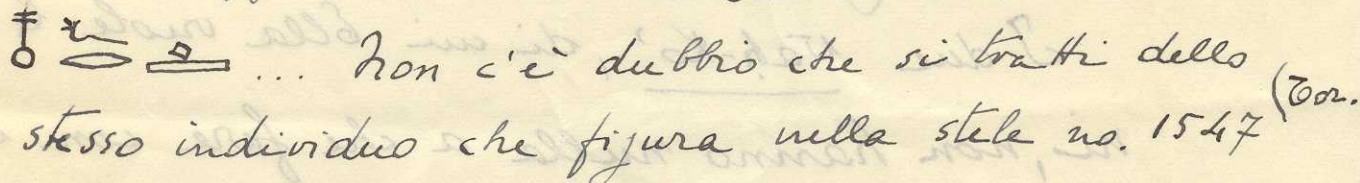 𓄤𓆑𓂋𓊵 ... Non c'è dubbio che si tratti dello
stesso individuo che figura nella stele no. 1547 (Tor.